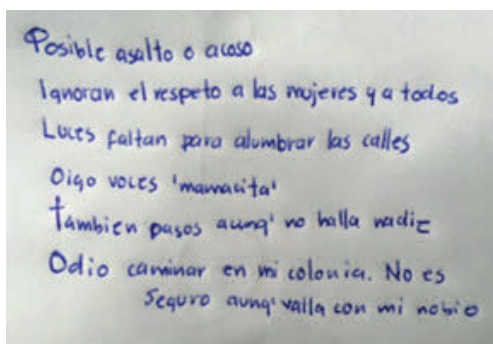 Posible asalto o acoso
Ignoran el respeto a las mujeres y a todos
Luces faltan para alumbrar las calles
Oigo voces 'mamacita'
Tambien pasos aunq' no halla nadie
Odio caminar en mi colonia. No es
Seguro aunq' valla con mi nobio